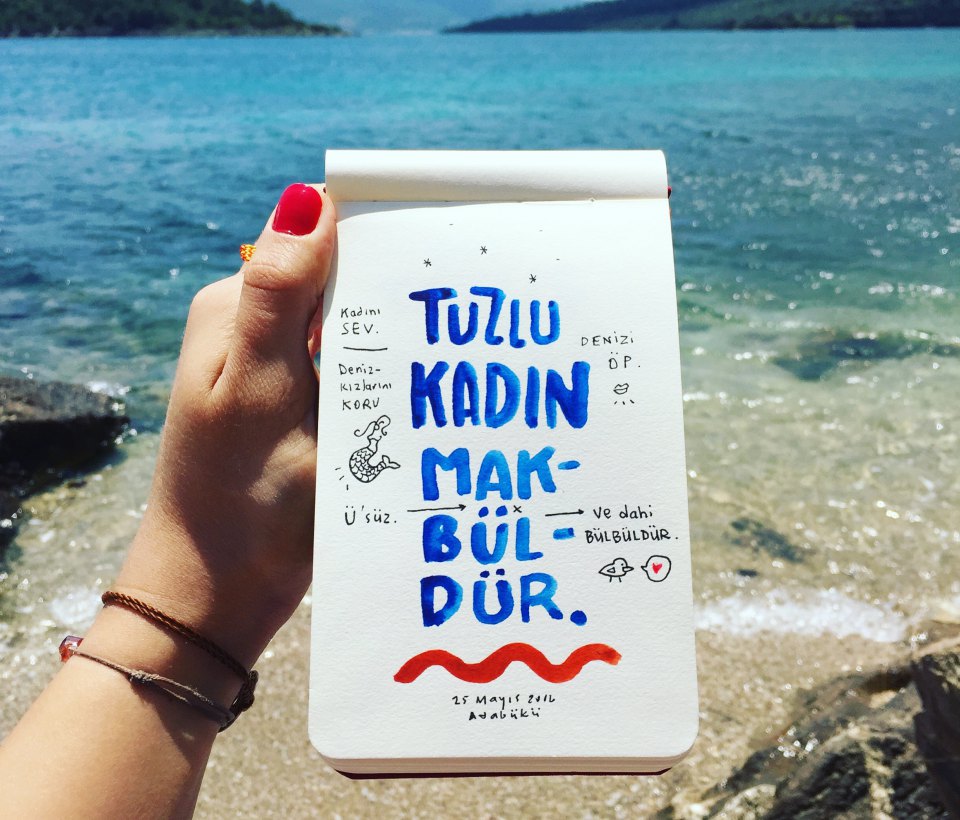 TUZLU
KADIN
MAK-
BÜL-
DÜR.
Kadını
SEV.
Deniz-
kızlarını
KORU
Ü'süz.
DENİZİ
ÖP.
ve dahi
BÜLBÜLDÜR.
25 Mayıs 2016
Adabükü